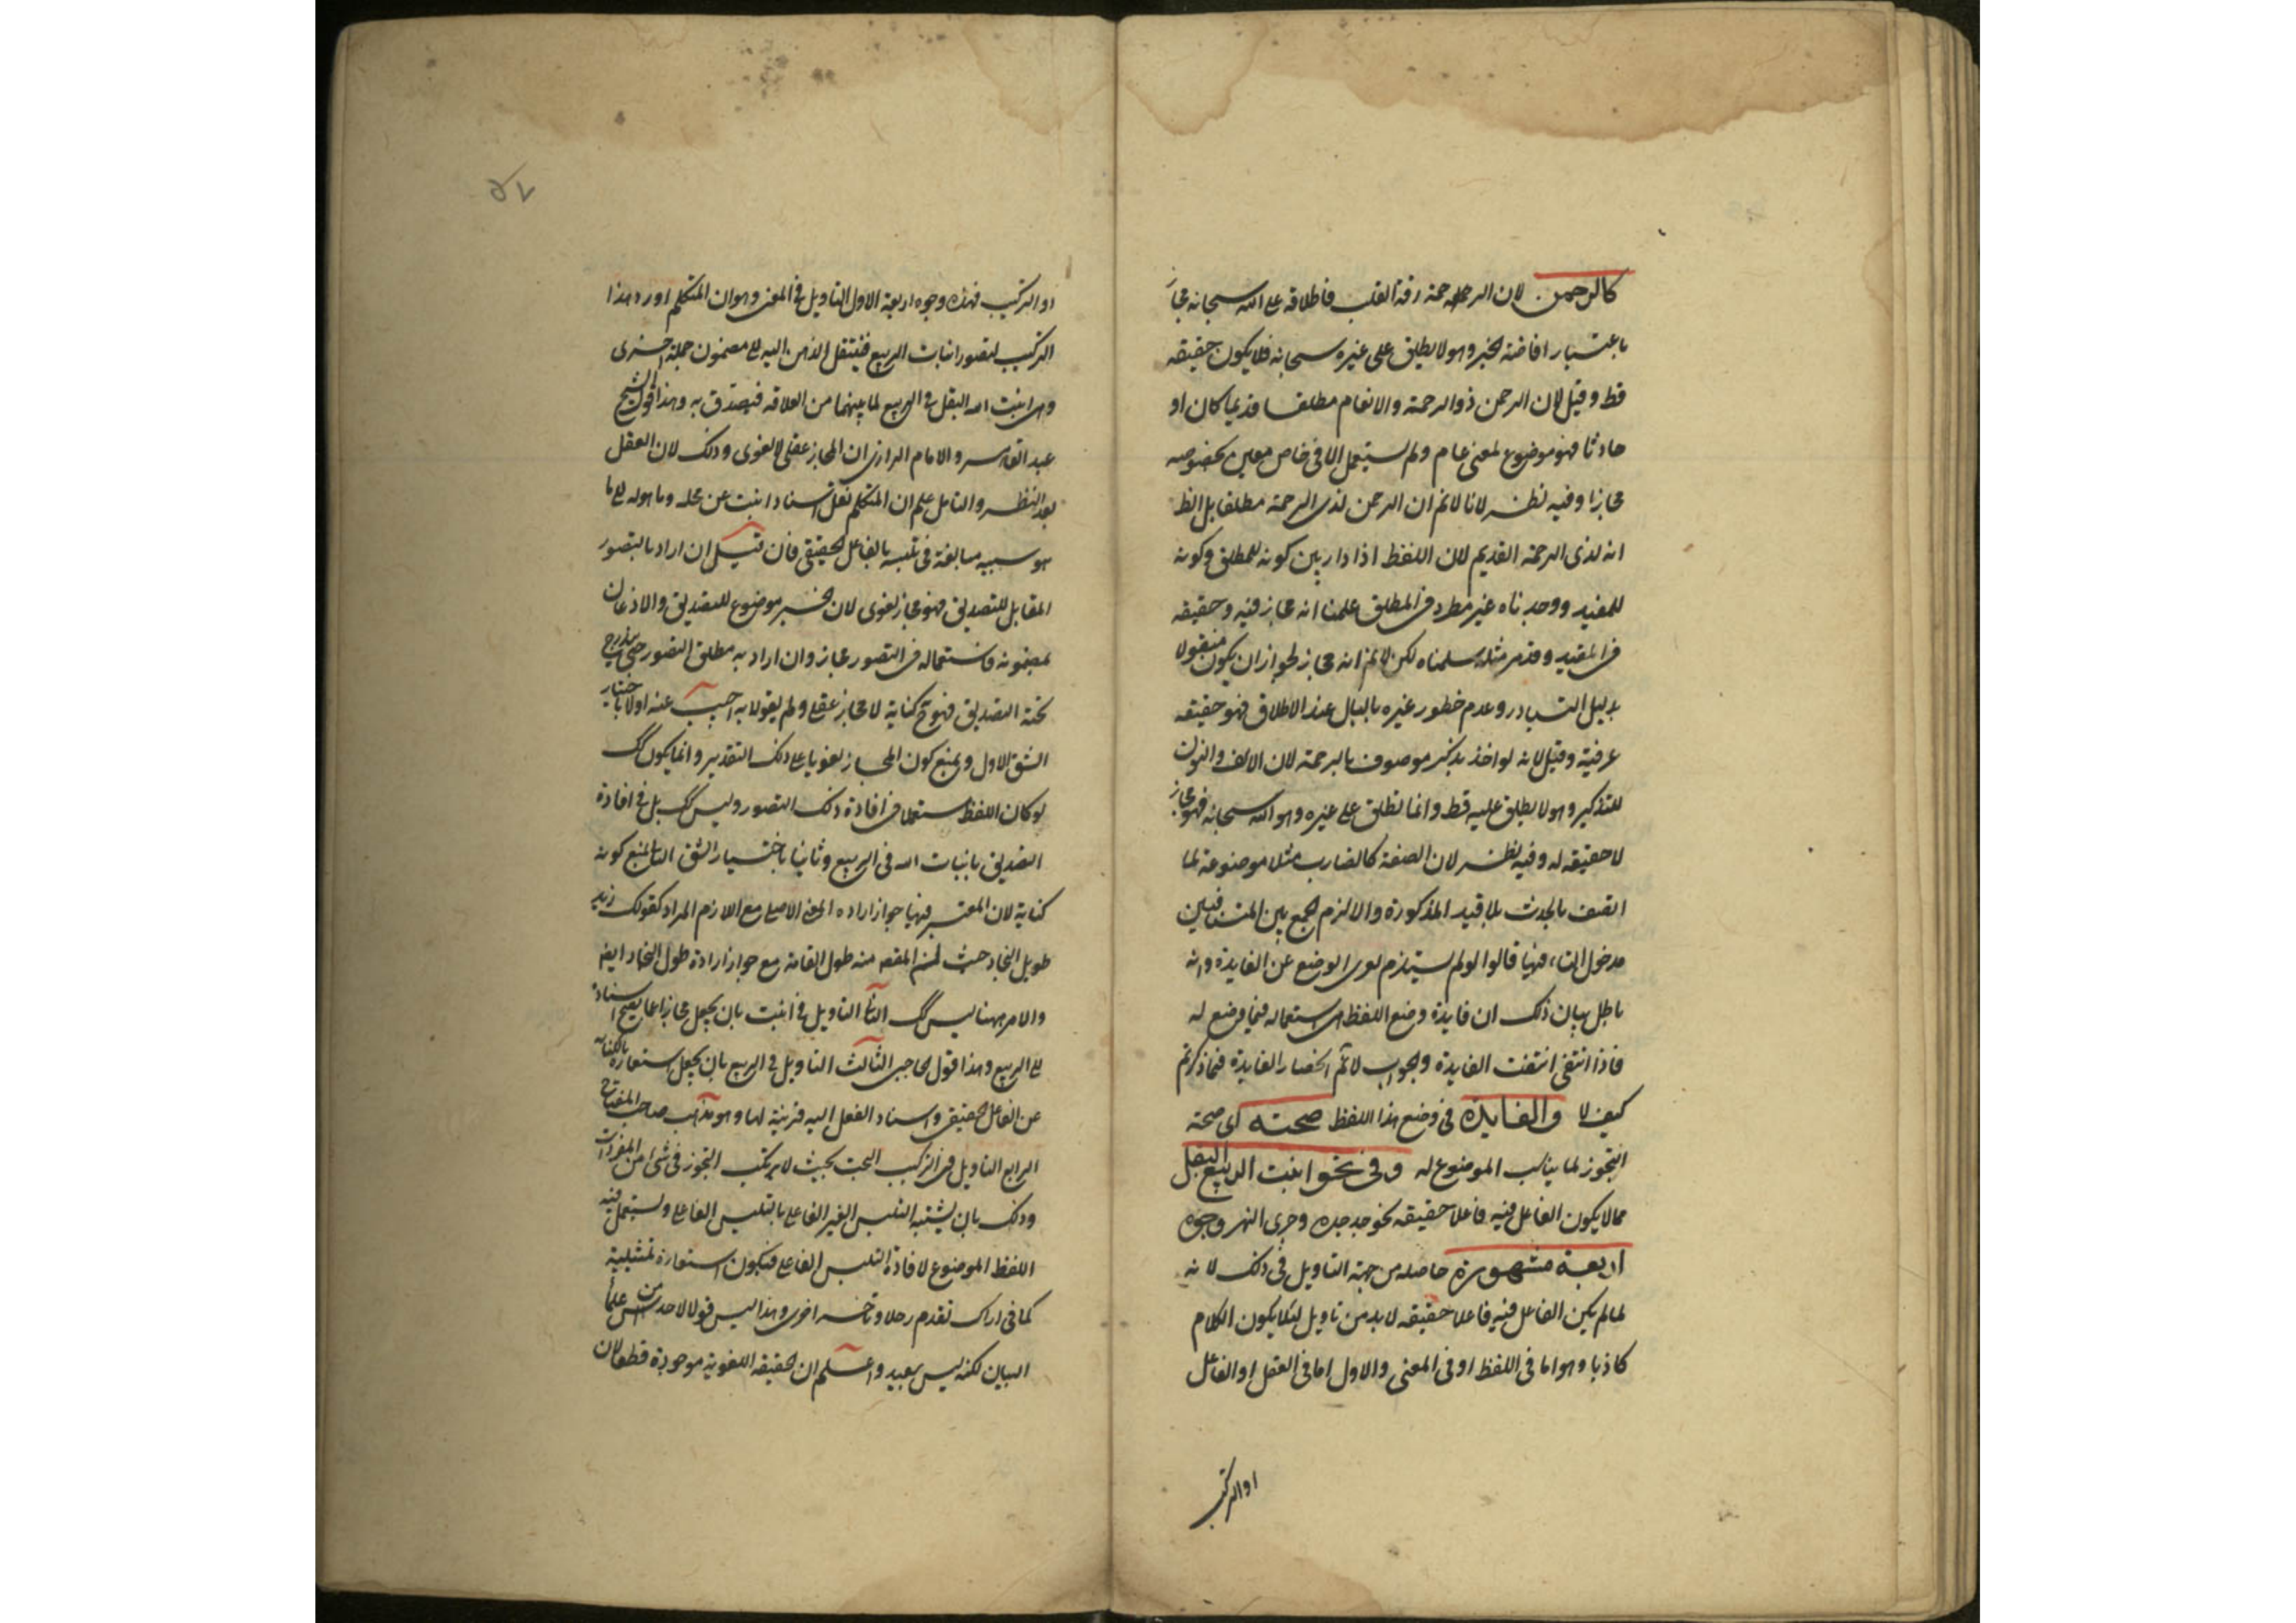 كالرحمن لان الرحمة رقة القلب فاطلاقه على الله سبحانه مجاز
باعتبار افاضته الخير وهو لا يطلق على غيره سبحانه فلا يكون حقيقه
قط وقيل لان الرحمن ذو الرحمة والانعام مطلقا قديما كان او
حادثا فهو موضوع لمعنى عام ولم يستعمل الا في خاص معين بخصوصه
مجازا وفيه نظر لانا لانم ان الرحمن لذى الرحمة مطلقا بل الظ
انه لذى الرحمة القديم لان اللفظ اذا دار بين كونه للمطلق وكونه
للمقيد ووجدناه غير مطرد في المطلق علمنا انه مجاز فيه وحقيقه
في المقيد وقد مر مثله سلمناه لكن لانم انه مجاز لجواز ان يكون منقولا
بدليل التبادر وعدم خطور غيره بالبال عند الاطلاق فهو حقيقه
عرفية وقيل لانه لو اخذ بذكر موصوف بالرحمة لان الالف والنون
للتذكير وهو لا يطلق عليه قط وانما تطلق على غيره وهو الله سبحانه فهو مجاز
لا حقيقه له وفيه نظر لان الصفة كالضارب مثلا موضوعة لما
اتصف بالحدث بلا قيد المذكورة والا لزم الجمع بين المتنافيين
مدخول التاء فيها قالوا لو لم يستلزم لعرى الوضع عن الفايدة وانه
باطل بيان ذلك ان فايدة وضع اللفظ هى استعماله فيما وضع له
فاذا انتفى انتفت الفايدة والجواب لانم انحصار الفايدة فيما ذكرتم
كيف لا والفايدة في وضع هذا اللفظ صحته اى صحة
التجوز لما يناسب الموضوع له وفي نحو انبت الربيع البقل
مما لا يكون الفاعل فيه فاعلا حقيقه نحو جد جده وجرى النهر وجوه
اربعة مشهورة حاصله من جهة التاويل في ذلك لانه
لما لم يكن الفاعل فيه فاعلا حقيقه لا بد من تاويل لئلا يكون الكلام
كاذبا وهو اما في اللفظ او في المعنى والاول اما في الفعل او الفاعل
او التركيب
٥٧
او التركيب فهذه وجوه اربعة الاول التاويل في المعنى وهو ان المتكلم اورد هذا
التركيب ليتصور انبات الربيع فينتقل الذهن اليه الى مضمون جملة اخرى
وهى انبت الله البقل في الربيع لما بينهما من العلاقه فيصدق به وهذا قول الشيخ
عبد القاهر والامام الرازى ان المجاز عقلى لا لغوى وذلك لان العقل
بعد النظر والتامل علم ان المتكلم نقل اسناد انبت عن محله وما هو له الى ما
هو سببه مبالغة في تلبسه بالفاعل الحقيقى فان قيل ان اراد بالتصور
المقابل للتصديق فهو مجاز لغوى لان الخبر موضوع للتصديق والاذعان
بمضمونه فاستعماله في التصور مجاز وان اراد به مطلق التصور حتى يندرج
تحته التصديق فهو ح كناية لا مجاز عقلى ولم يقولا به اجيب عنه اولا باختيار
الشق الاول ويمنع كون المجاز لغويا على ذلك التقدير وانما يكون كك
لو كان اللفظ مستعملا في افادة ذلك التصور وليس كك بل في افادة
التصديق بانبات الله في الربيع وثانيا باختيار الشق الثانى يمنع كونه
كناية لان المعتبر فيها جواز اراده المعنى الاصلى مع اللازم المراد كقولك زيد
طويل النجاد حيث لمن المقصد منه طول القامة مع جواز ارادة طول النجاد ايضا
والامر ههنا ليس كك الثانى التاويل في انبت بان يجعل مجازا عما يصح اسناده
الى الربيع وهذا قول الحاجبى الثالث التاويل في الربيع بان يجعل استعارة بالكناية
عن الفاعل الحقيقى واسناد الفعل اليه قرينية لها وهو مذهب صاحب المفتاح
الرابع التاويل في التركيب البحت بحيث لا يرتكب التجوز في شئ من المفردات
وذلك بان يشتبه التلبس الغير الفاعلى بالتلبس الفاعلى ويستعمل فيه
اللفظ الموضوع لافادة التلبس الفاعلى فيكون استعارة تمثيلية
كما في اراك تقدم رجلا وتؤخر اخرى وهذا ليس قولا لاحد من علماء
البيان لكنه ليس ببعيد واعلم ان الحقيقه اللغوية موجودة قطعا لان